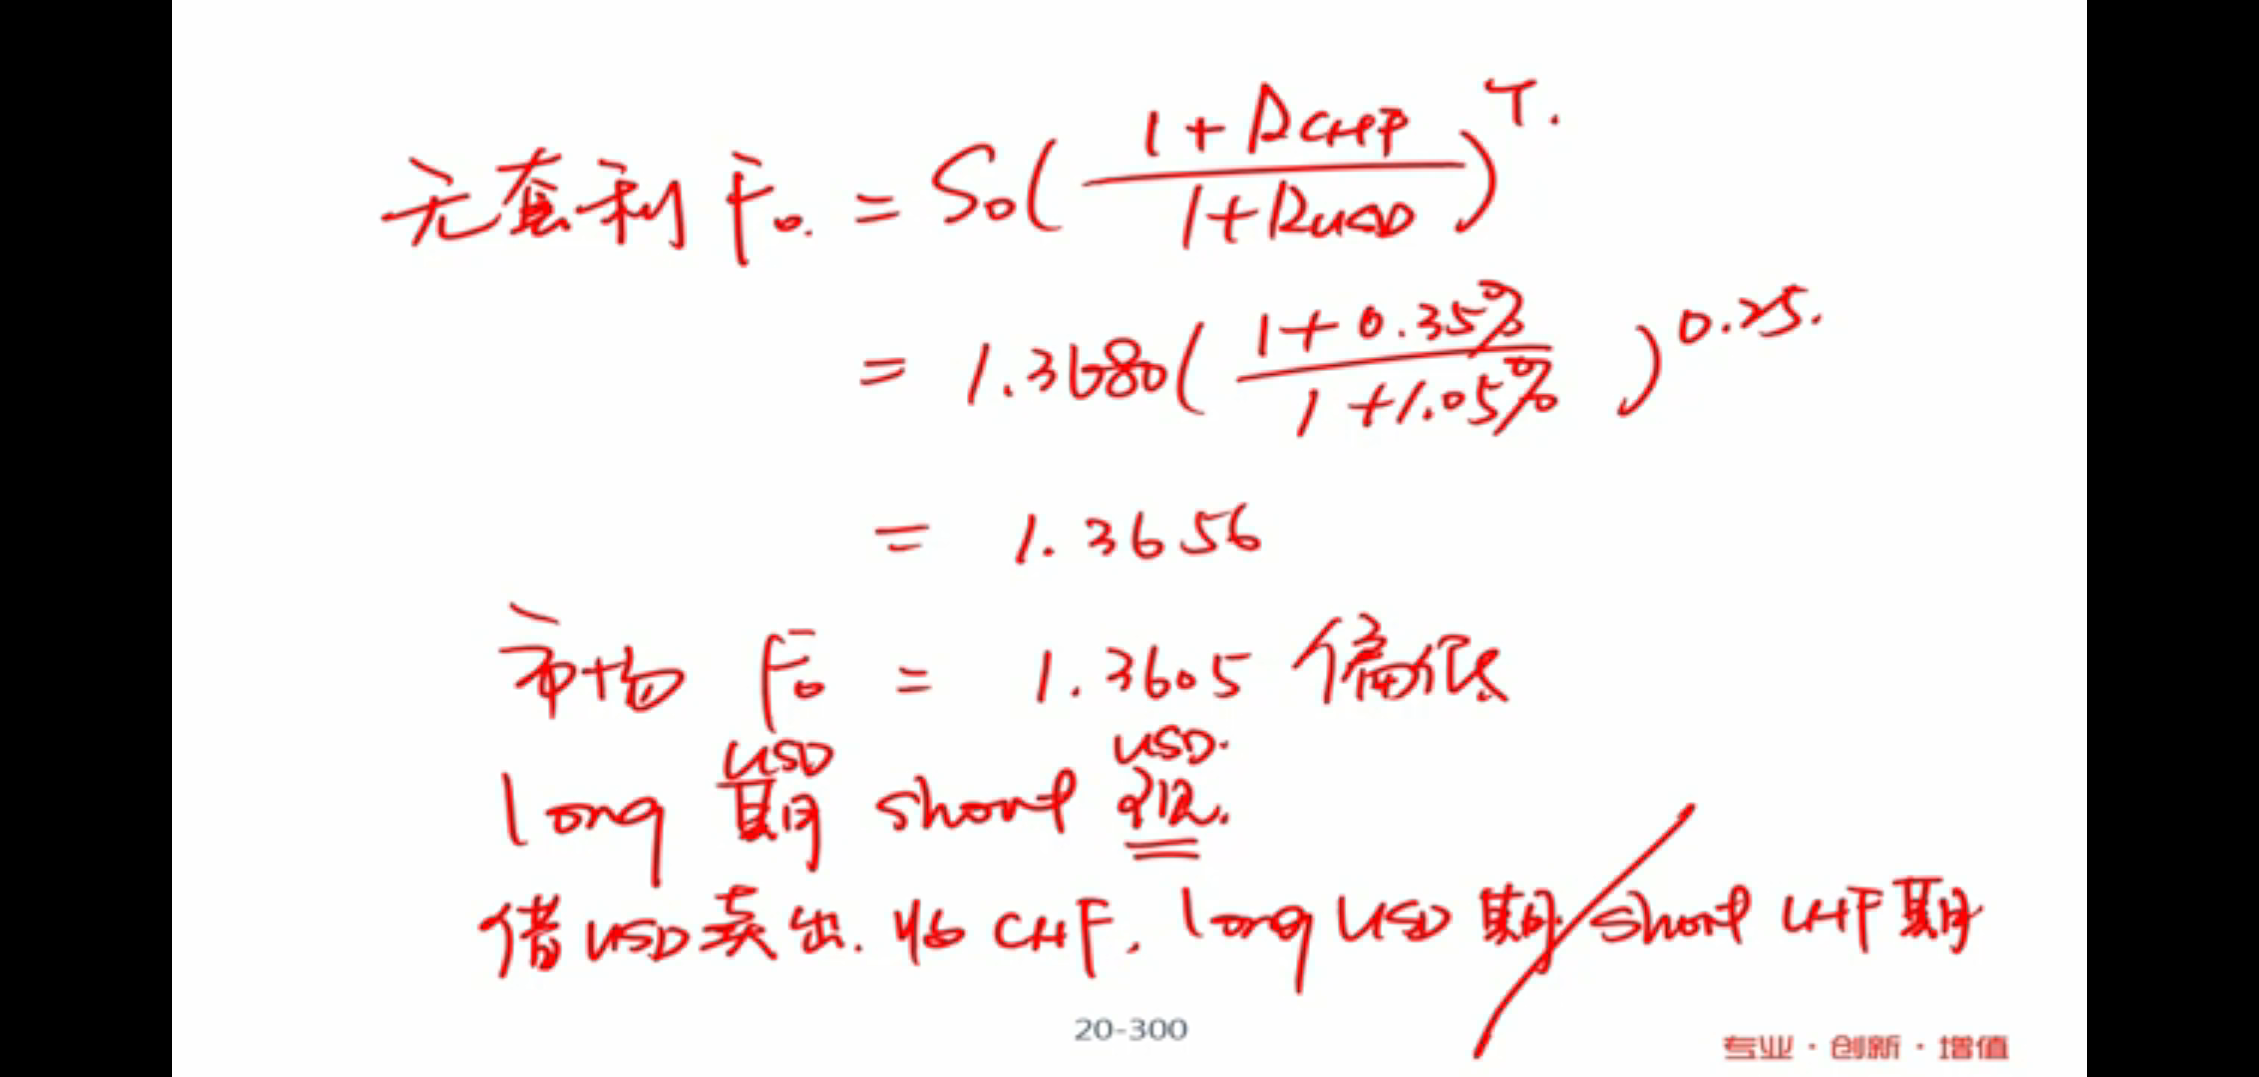 无套利 F₀. = S₀( (1+R_CHF)/(1+R_USD) )^T.
= 1.3680( (1+0.35%)/(1+1.05%) )^0.25.
= 1.3656
市场 F₀ = 1.3605 偏低
long USD期 short USD.现.
借USD卖出. 收 CHF, long USD 期/short CHF 期
20-300
专业·创新·增值